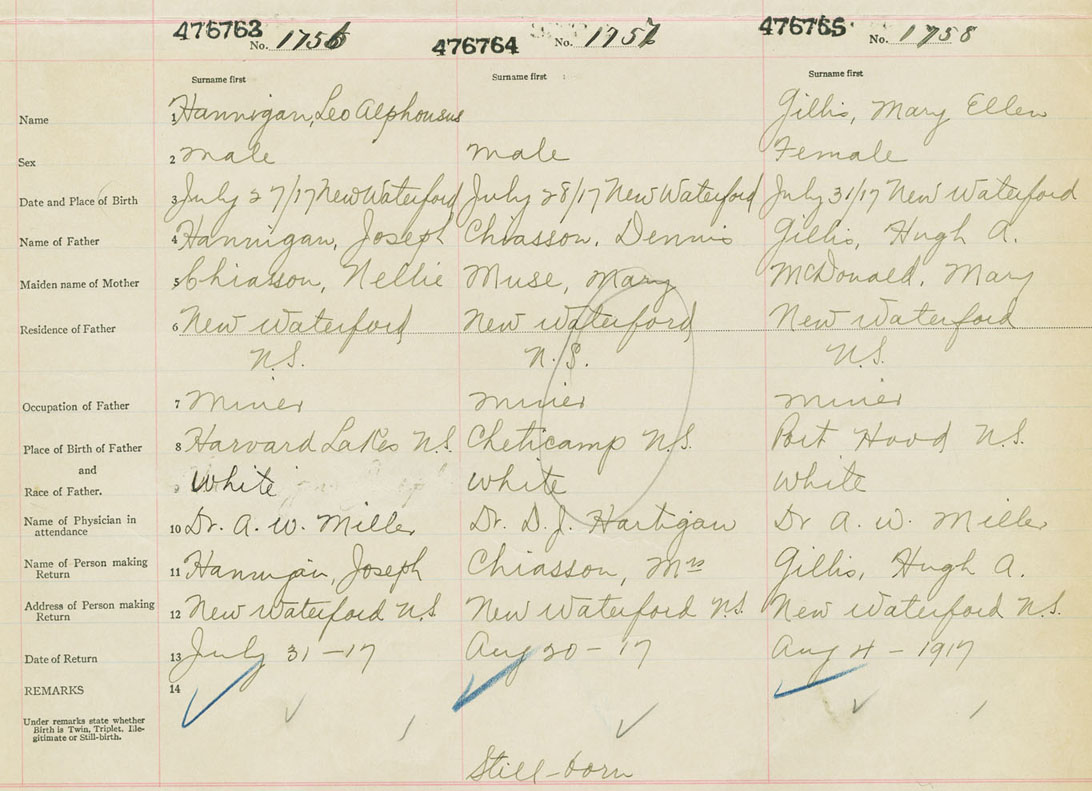 476763 No. 1756 476764 No. 1757 476765 No. 1758
Surname first Surname first Surname first
Name 1 Hannigan, Leo Alphonsus Gillis, Mary Ellen
Sex 2 male male Female
Date and Place of Birth 3 July 27/17 New Waterford July 28/17 New Waterford July 31/17 New Waterford
Name of Father 4 Hannigan, Joseph Chiasson, Dennis Gillis, Hugh A.
Maiden name of Mother 5 Chiasson, Nellie Muse, Mary McDonald, Mary
Residence of Father 6 New Waterford New Waterford New Waterford
N.S. N.S. N.S.
Occupation of Father 7 Miner miner miner
Place of Birth of Father 8 Harvard Lakes N.S. Cheticamp N.S. Port Hood N.S.
and
Race of Father. 9 White white white
Name of Physician in
attendance 10 Dr. A. W. Miller Dr. D. J. Hartigan Dr A. W. Miller
Name of Person making
Return 11 Hannigan, Joseph Chiasson, Mrs Gillis, Hugh A.
Address of Person making
Return 12 New Waterford N.S. New Waterford N.S. New Waterford N.S.
Date of Return 13 July 31-17 Aug 20-17 Aug 4-1917
REMARKS 14
Under remarks state whether
Birth is Twin, Triplet, Ille-
gitimate or Still-birth.
Still-born